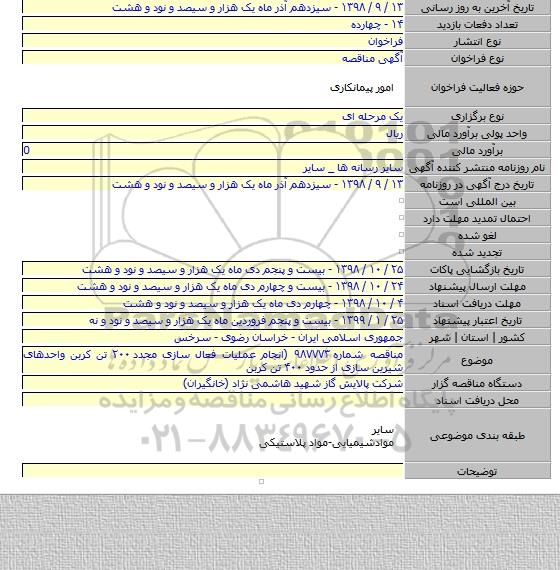 تاریخ آخرین به روز رسانی ۱۳ / ۹ / ۱۳۹۸ - سیزدهم آذر ماه یک هزار و سیصد و نود و هشت
تعداد دفعات بازدید ۱۴ - چهارده
نوع انتشار فراخوان
نوع فراخوان آگهی مناقصه
حوزه فعالیت فراخوان امور پیمانکاری
نوع برگزاری یک مرحله ای
واحد پولی برآورد مالی ریال
برآورد مالی 0
نام روزنامه منتشر کننده آگهی سایر رسانه ها _ سایر
تاریخ درج آگهی در روزنامه ۱۳ / ۹ / ۱۳۹۸ - سیزدهم آذر ماه یک هزار و سیصد و نود و هشت
بین المللی است
احتمال تمدید مهلت دارد
لغو شده
تجدید شده
تاریخ بازگشایی پاکات ۲۵ / ۱۰ / ۱۳۹۸ - بیست و پنجم دی ماه یک هزار و سیصد و نود و هشت
مهلت ارسال پیشنهاد ۲۴ / ۱۰ / ۱۳۹۸ - بیست و چهارم دی ماه یک هزار و سیصد و نود و هشت
مهلت دریافت اسناد ۴ / ۱۰ / ۱۳۹۸ - چهارم دی ماه یک هزار و سیصد و نود و هشت
تاریخ اعتبار پیشنهاد ۲۵ / ۱ / ۱۳۹۹ - بیست و پنجم فروردین ماه یک هزار و سیصد و نود و نه
کشور | استان | شهر جمهوری اسلامی ایران - خراسان رضوی - سرخس
موضوع مناقصه شماره ۹۸۷۷۷۳ (انجام عملیات فعال سازی مجدد ۲۰۰ تن کربن واحدهای
شیرین سازی از حدود ۴۰۰ تن کربن
دستگاه مناقصه گزار شرکت پالایش گاز شهید هاشمی نژاد (خانگیران)
محل دریافت اسناد
پایگاه اطلاع رسانی مناقصه و مزایده
طبقه بندی موضوعی سایر
موادشیمیایی-مواد پلاستیکی
۰۲۱-۸۸۳۴۹۶۷۰-۵
توضیحات